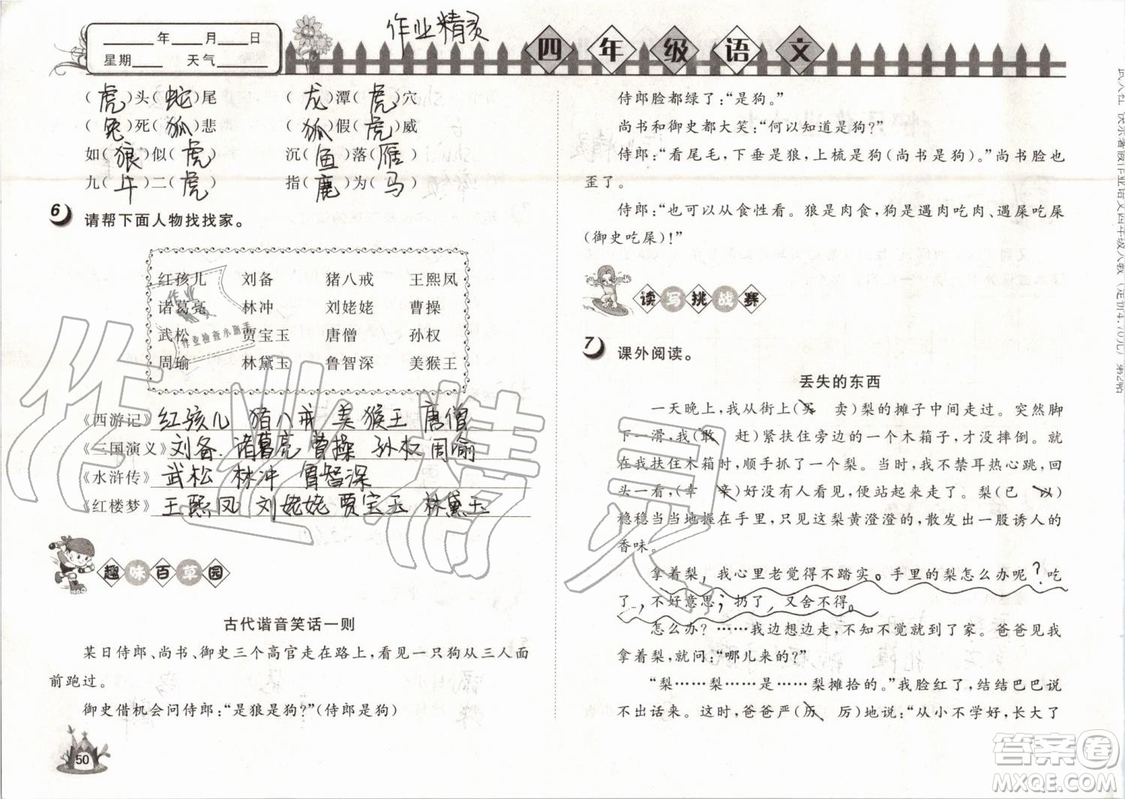 ____年____月____日
星期____ 天气____
作业精灵
四年级语文
(虎)头(蛇)尾 (龙)潭(虎)穴
(兔)死(狐)悲 (狐)假(虎)威
如(狼)似(虎) 沉(鱼)落(雁)
九(牛)二(虎) 指(鹿)为(马)
6 请帮下面人物找找家。
红孩儿 刘备 猪八戒 王熙凤
诸葛亮 林冲 刘姥姥 曹操
武松 贾宝玉 唐僧 孙权
周瑜 林黛玉 鲁智深 美猴王
《西游记》红孩儿 猪八戒 美猴王 唐僧
《三国演义》刘备 诸葛亮 曹操 孙权 周瑜
《水浒传》武松 林冲 鲁智深
《红楼梦》王熙凤 刘姥姥 贾宝玉 林黛玉
趣味百草园
古代谐音笑话一则
某日侍郎、尚书、御史三个高官走在路上，看见一只狗从三人面
前跑过。
御史借机会问侍郎：“是狼是狗？”(侍郎是狗)
50
侍郎脸都绿了：“是狗。”
尚书和御史都大笑：“何以知道是狗？”
侍郎：“看尾毛，下垂是狼，上梳是狗(尚书是狗)。尚书脸也
歪了。
侍郎：“也可以从食性看。狼是肉食，狗是遇肉吃肉、遇屎吃屎
(御史吃屎)！”
读写挑战赛
7 课外阅读。
丢失的东西
一天晚上，我从街上(买 卖)梨的摊子中间走过。突然
脚下一滑，我(敢 赶)紧扶住旁边的一个木箱子，才没摔倒。就
在我扶住木箱时，顺手抓了一个梨。我不禁耳热心跳，回
头一看，(幸 辛)好没有人看见，便站起来走了。梨(已 以)
稳稳当当地握在手里，只见这梨黄澄澄的，散发出一股诱人的
香味。
拿着梨，我心里老觉得不踏实。手里的梨怎么办呢？吃
了，不好意思；扔了，又舍不得。
怎么办？……我边想边走，不知不觉就到了家。爸爸见我
拿着梨，就问：“哪儿来的？”
“梨……梨……是……是……梨摊拾的。”我脸红了，结结巴巴说
不出话来。这时，爸爸严(历 厉)地说：“从小不学好，长大了
作业精灵
作业
作业检查小助手
答案圈
MXQE.COM